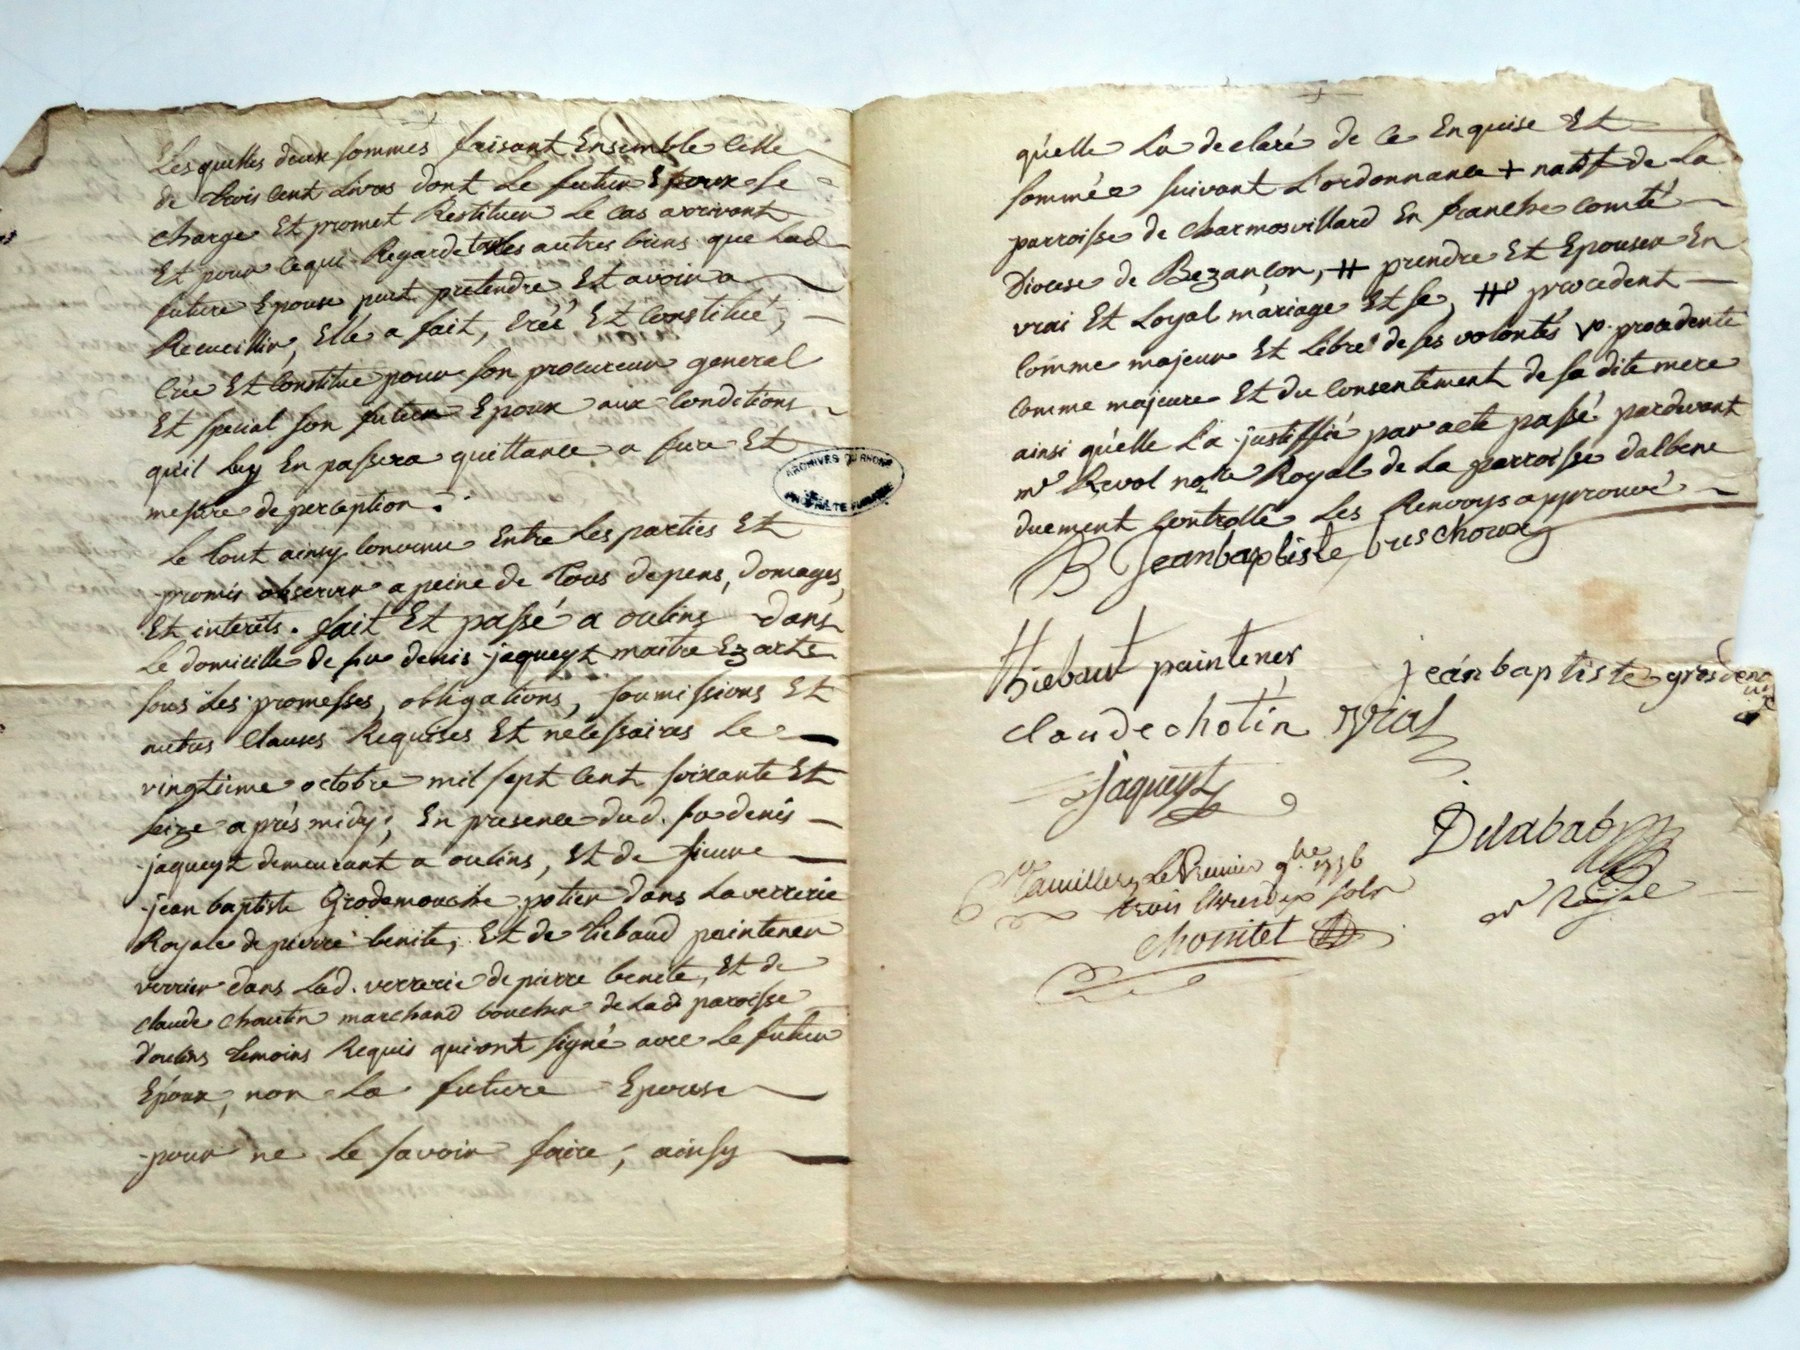 Lesquelles deux sommes faisant Ensemble Celle
de trois Cent Livres dont Le futur Epoux se
charge Et promet Restituer Le Cas arrivant
Et pour Ce qui Regarde les autres biens que Lad
future Epouse peut pretendre Et avoir a
Recueillir, Elle a fait, Créé Et Constitué,
Crée Et Constitue pour son procureur general
Et special son futur Epoux aux Conditions
qu'il luy En passera quittance a fure Et
mesure de perception.
Le Tout ainsy Convenu Entre Les parties Et
promis observer a peine de Tous depens, domages,
Et interêts. fait Et passé a oulins dans
Le domicille de sr denis jaqueyt maitre Ez arts
sous Les promesses, obligations, soumissions Et
autres Clauses Requises Et necessaires Le
vingtieme octobre mil sept Cent soixante Et
seize aprés midy, En presence dud. sr denis
jaqueyt demeurant a oulins, Et de sieur
jean baptiste Grodemouche potier dans La verrerie
Royale de pierre benite, Et de Tiebaud paintener
verrier dans Lad. verrerie de pierre benite, Et de
claude Chautin marchand boucher de Lad paroisse
d'oulins temoins Requis qui ont signé avec Le futur
Epoux, non La future Epouse
pour ne Le savoir faire, ainsy
qu'elle L'a declaré de Ce Enquise Et
sommée suivant L'ordonnance + natif de La
parroisse de charmosvillard En franche comté
Diocese de Bezançon, # prendre Et Epouser En
vrai Et Loyal mariage Et se, # procedent
Comme majeur Et Libre de ses volontés procedente
Comme majeure Et du Consentement de sa dite mere
ainsi qu'elle L'a justiffié par acte passé pardevant
me Revol nore Royal de La parroisse dalbene
duement Controllé Les Renvoys approuvé
Jean baptiste bres choux
ARCHIVES DU RHONE
Hiebaut paintener
jean baptiste grosdemouche
claude chotin
Vial
jaqueyt
Delabat
Clle a millery Le Premier 9bre 1776
trois Livres dix sols
Chomitet